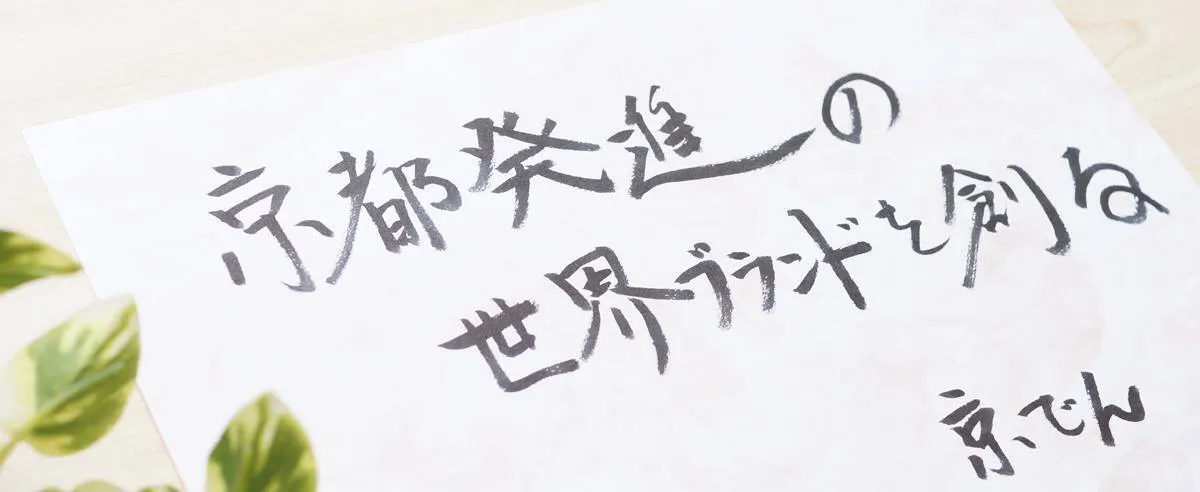 京都発進の
世界ブランドを創る
京でん